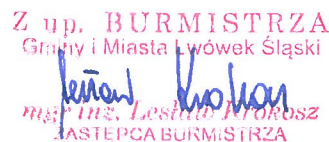 Z up. BURMISTRZA
Gminy i Miasta Lwówek Śląski
mgr inż. Leszek Krokosz
ZASTĘPCA BURMISTRZA